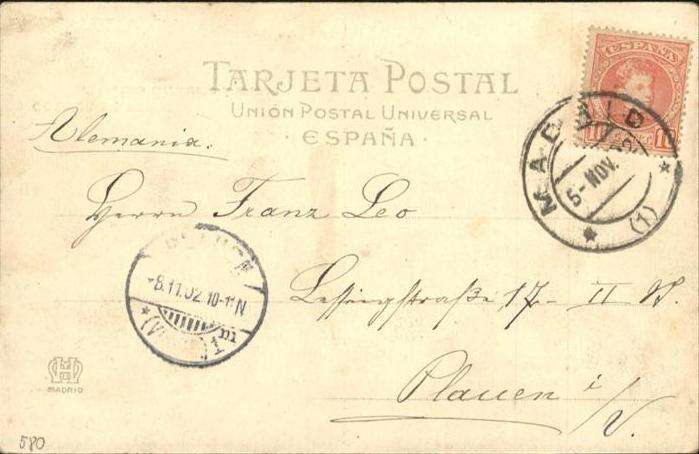 TARJETA POSTAL
UNIÓN POSTAL UNIVERSAL
· ESPAÑA ·
ESPAÑA
10
MADRID
5-NOV.
(1)
Alemania.
Herrn Franz Leo
Lessingstraße 17 - II
Plauen i/V.
-8.11.02.10-11N
1
MADRID
580